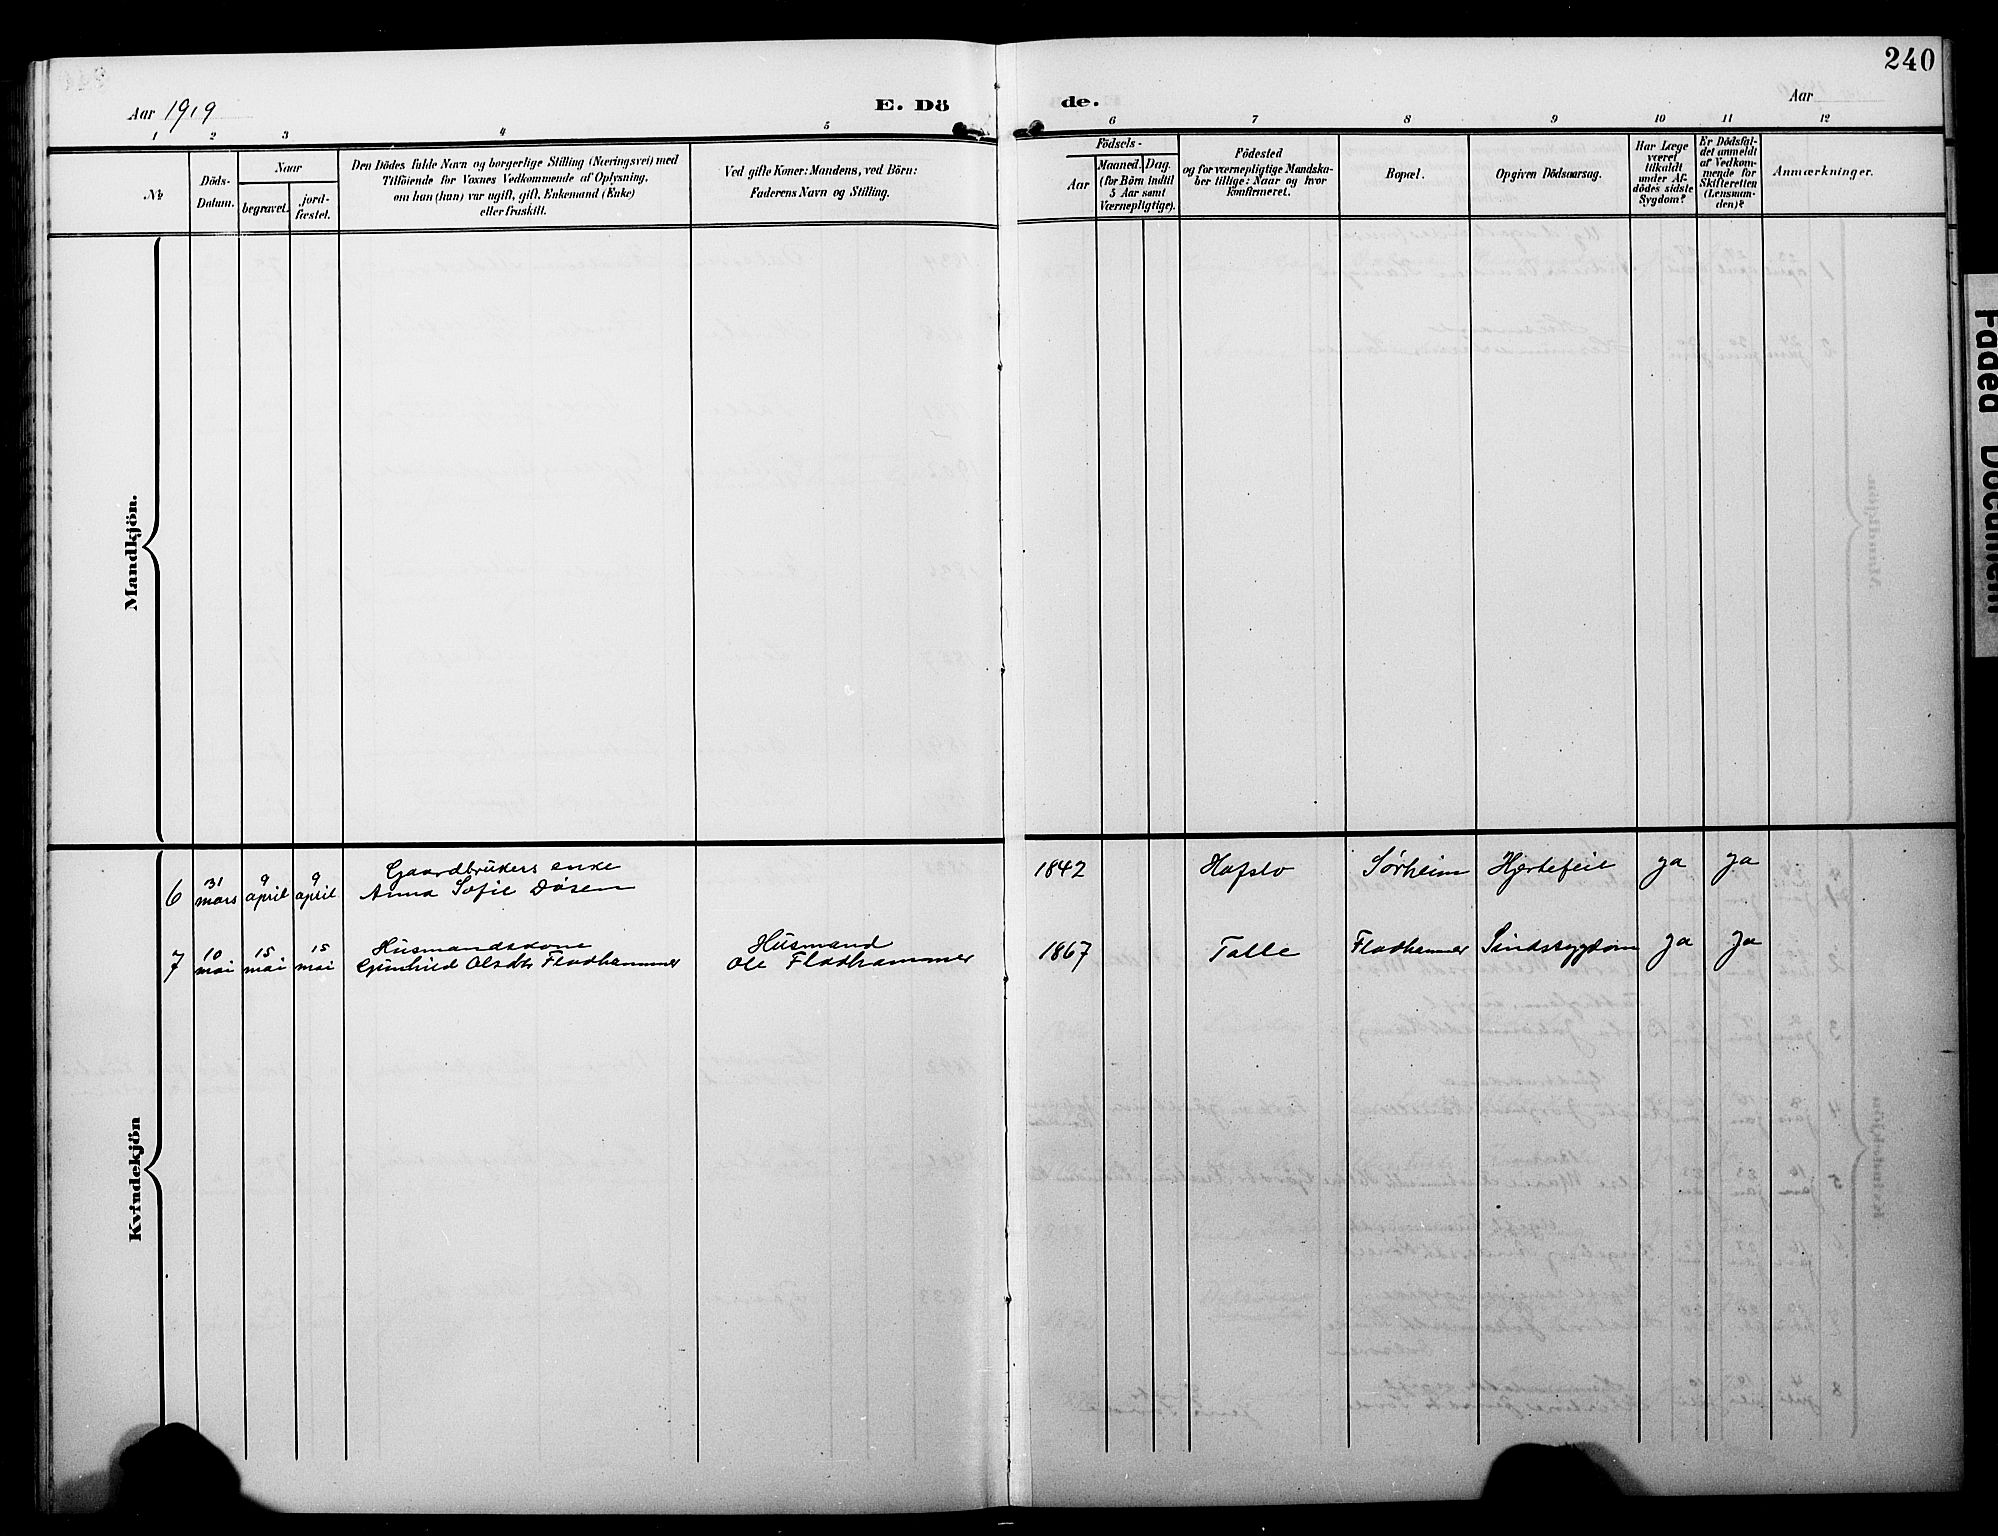 240
Aar 1919
E. Dö
de.
Aar
1 2 3 4 5 6 7 8 9 10 11 12
No
Döds-
Datum.
Naar
begravet.
jord-
fæstet.
Den Dödes fulde Navn og borgerlige Stilling (Næringsvei) med
Tilföiende for Voxnes Vedkommende af Oplysning,
om han (hun) var ugift, gift, Enkemand (Enke)
eller fraskilt.
Ved gifte Koner: Mandens, ved Börn:
Faderens Navn og Stilling.
Födsels-
Aar
Maaned. Dag.
(for Börn indtil
5 Aar samt
Værnepligtige).
Födested
og for værnepligtige Mandska-
ber tillige: Naar og hvor
konfirmeret.
Bopæl.
Opgiven Dödsaarsag.
Har Læge
været
tilkaldt
under Af-
dödes sidste
Sygdom?
Er Dödsfal-
det anmeldt
af Vedkom-
mende for
Skifteretten
(Lensman-
den)?
Anmærkninger.
Mandkjön.
Kvindekjön
6 31 mars 9 april 9 april
Gaardbrukers enke
Anna Sofie Døsen
1842 Hafslo Sørheim Hjertefeil ja ja
7 10 mai 15 mai 15 mai
Husmandskone
Gunhild Olsdtr Fladhammer
Husmand
Ole Fladhammer
1867 Talle Fladhammer Sindssygdom ja ja
Faded Document